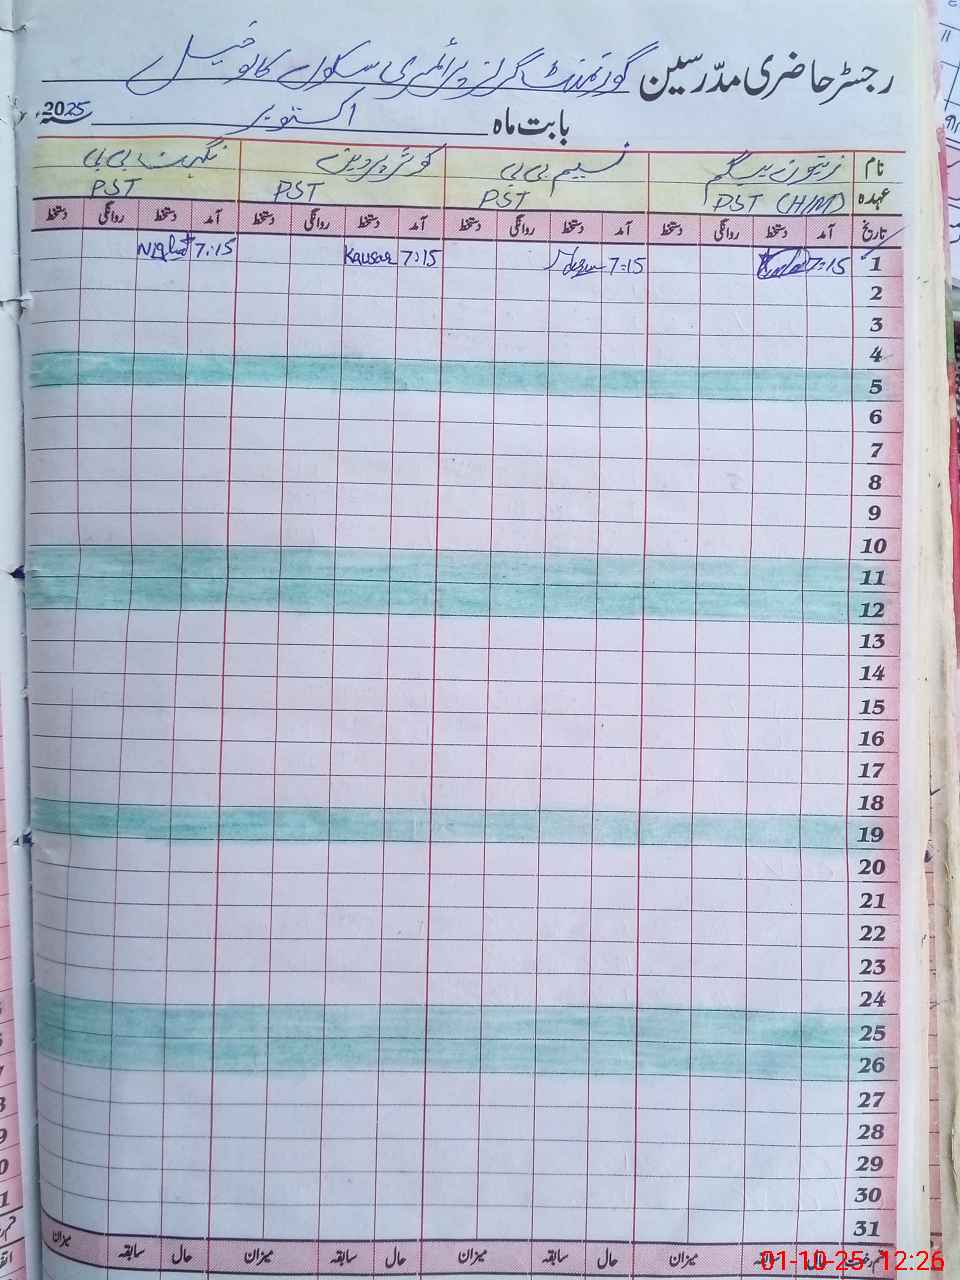 رجسٹر حاضری مدّرسین گورنمنٹ گرلز پرائمری سکول کالوخیل
بابت ماہ اکتوبر 2025ء
نام زیتون بیگم نسیم بی بی کوثر پروین نگہت بی بی
عہدہ PST (H/M) PST PST PST
تاریخ آمد دستخط روانگی دستخط آمد دستخط روانگی دستخط آمد دستخط روانگی دستخط آمد دستخط روانگی دستخط
1 7:15 7:15 7:15 Kausar 7:15 Nighat
2
3
4
5
6
7
8
9
10
11
12
13
14
15
16
17
18
19
20
21
22
23
24
25
26
27
28
29
30
31
حال سابقہ میزان حال سابقہ میزان حال سابقہ میزان حال سابقہ میزان
01-10-25 12:26